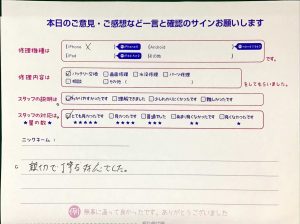 本日のご意見・ご感想など一言と確認のサインお願いします
修理機種は
iPhone X
Android
iPad
その他
です。
修理内容は
バッテリー交換 画面修理 水没修理 パーツ修理
相談 その他
をしてもらいました。
スタッフの説明は
わかりやすかったです 理解できました 少しわかりにくかったです 難しかったです
スタッフの対応は
★星の数★
とても良かったです 良かったです 普通でした あまり良くなかったです 良くなかったです
★★★★★ ★★★★ ★★★ ★★ ★
ニックネーム：
親切で丁寧な対応でした。
無事に直って良かったです。ありがとうございました